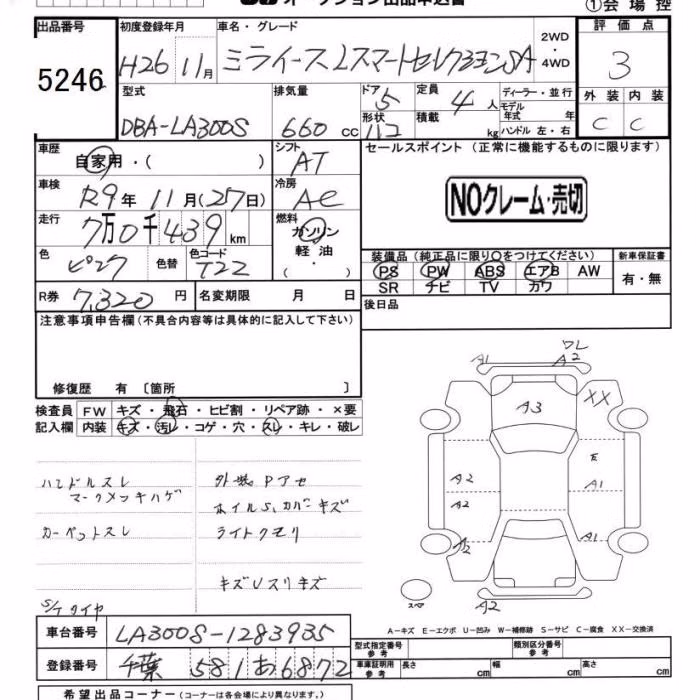 オークション出品申込書
①会場控
出品番号
5246
初度登録年月
H26 11月
車名・グレード
ミライース LスマートセレクションSA
2WD・4WD
評価点
3
外装 内装
C C
型式
DBA-LA300S
排気量
660 cc
ドア 5
形状
定員 4人
積載 kg
ディーラー・並行
モデル年式 年
ハンドル 左・右
車歴
自家用・( )
シフト
AT
セールスポイント (正常に機能するものに限ります)
NOクレーム・売切
車検
R9年 11月(27日)
冷房
AC
走行
7万0千439km
燃料
ガソリン
軽油
( )
色
ピンク
色替
色コード
T22
装備品 (純正品に限り○をつけてください)
新車保証書
PS PW ABS エアB AW
SR ナビ TV カワ
有・無
R券 7,320円
名変期限 月 日
後日品
注意事項申告欄 (不具合内容等は具体的に記入して下さい)
修復歴 有 〔箇所 〕
検査員記入欄
FW キズ・飛石・ヒビ割・リペア跡・×要
内装 キズ・汚レ・コゲ・穴・スレ・キレ・破レ
ハンドルスレ
マークメッキハゲ
カーペットスレ
外装Pアセ
ホイルS,カバーキズ
ライトクモリ
キズUスリキズ
S/Tタイヤ
ワレ
A1 A2
A3
XX
E
A2 A1
A2
A2 A1
A2
スペア
A-キズ E-エクボ U-凹み W-補修跡 S-サビ C-腐食 XX-交換済
車台番号
LA300S-1283935
登録番号
千葉 581 あ6872
型式指定番号 参考
類別区分番号 参考
車庫証明用 参考 長さ cm 幅 cm 高さ cm
希望出品コーナー (コーナーは各会場により異なります。)